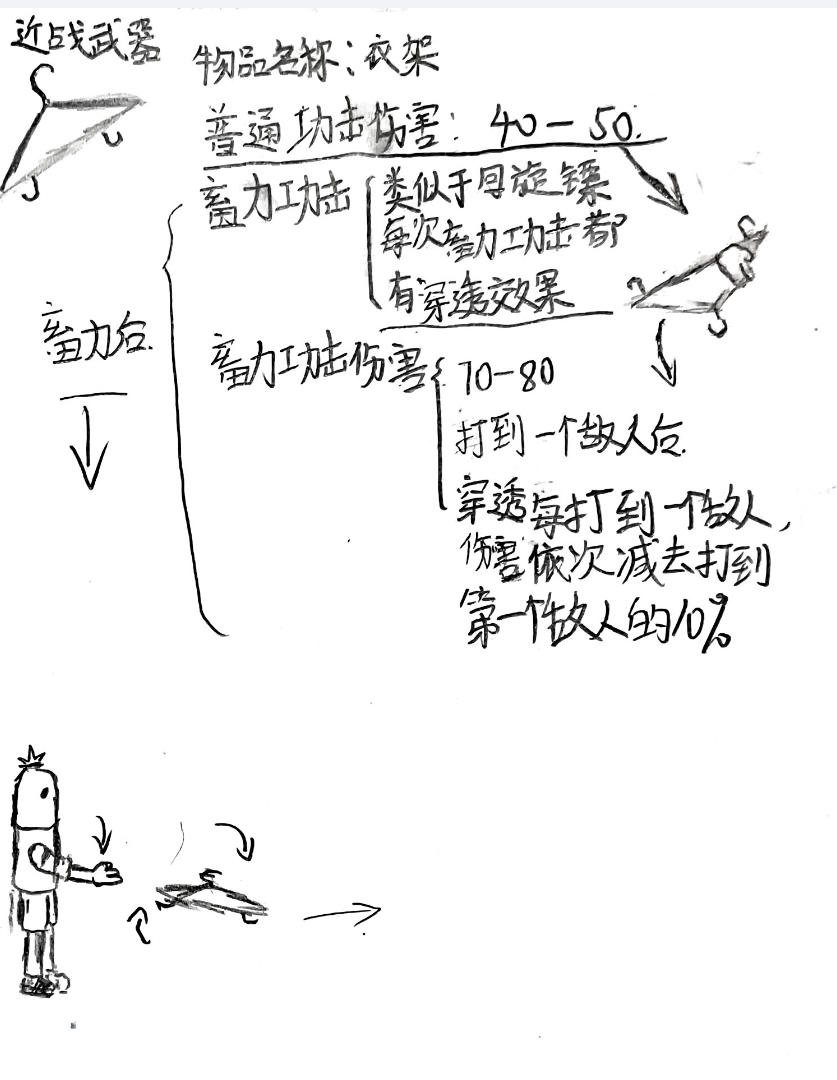 近战武器
物品名称：衣架
普通功击伤害：40－50.
畜力功击
类似于回旋镖
每次畜力功击都
有穿透效果
畜力后.
畜力功击伤害
70-80
打到一个敌人后.
穿透每打到一个敌人,
伤害依次减去打到
第一个敌人的10%